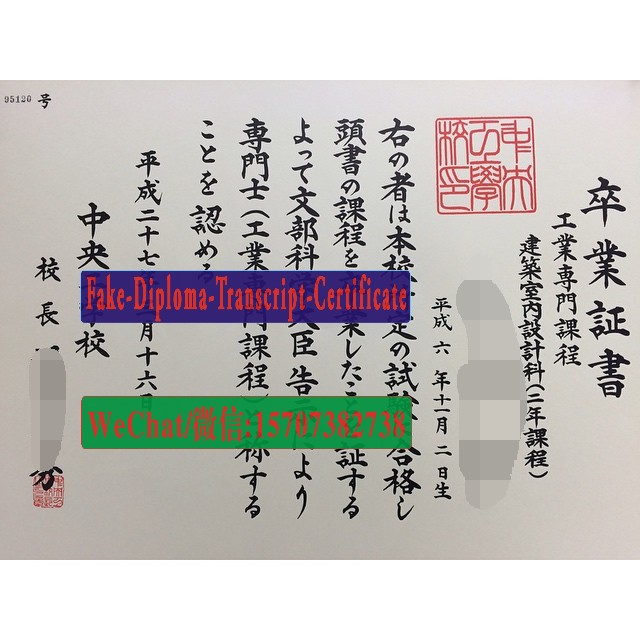 卒業証書
工業専門課程
建築室内設計科(二年課程)
平成六年十一月二日生
中央工學校印
右の者は本校定の試験合格し
頭書の課程を業したことを証する
よって文部科大臣告示により
専門士(工業専門課程)と称する
ことを認める
平成二十七年月十六日
中央学校
校長
95120 号
Fake-Diploma-Transcript-Certificate
WeChat/微信:15707382738